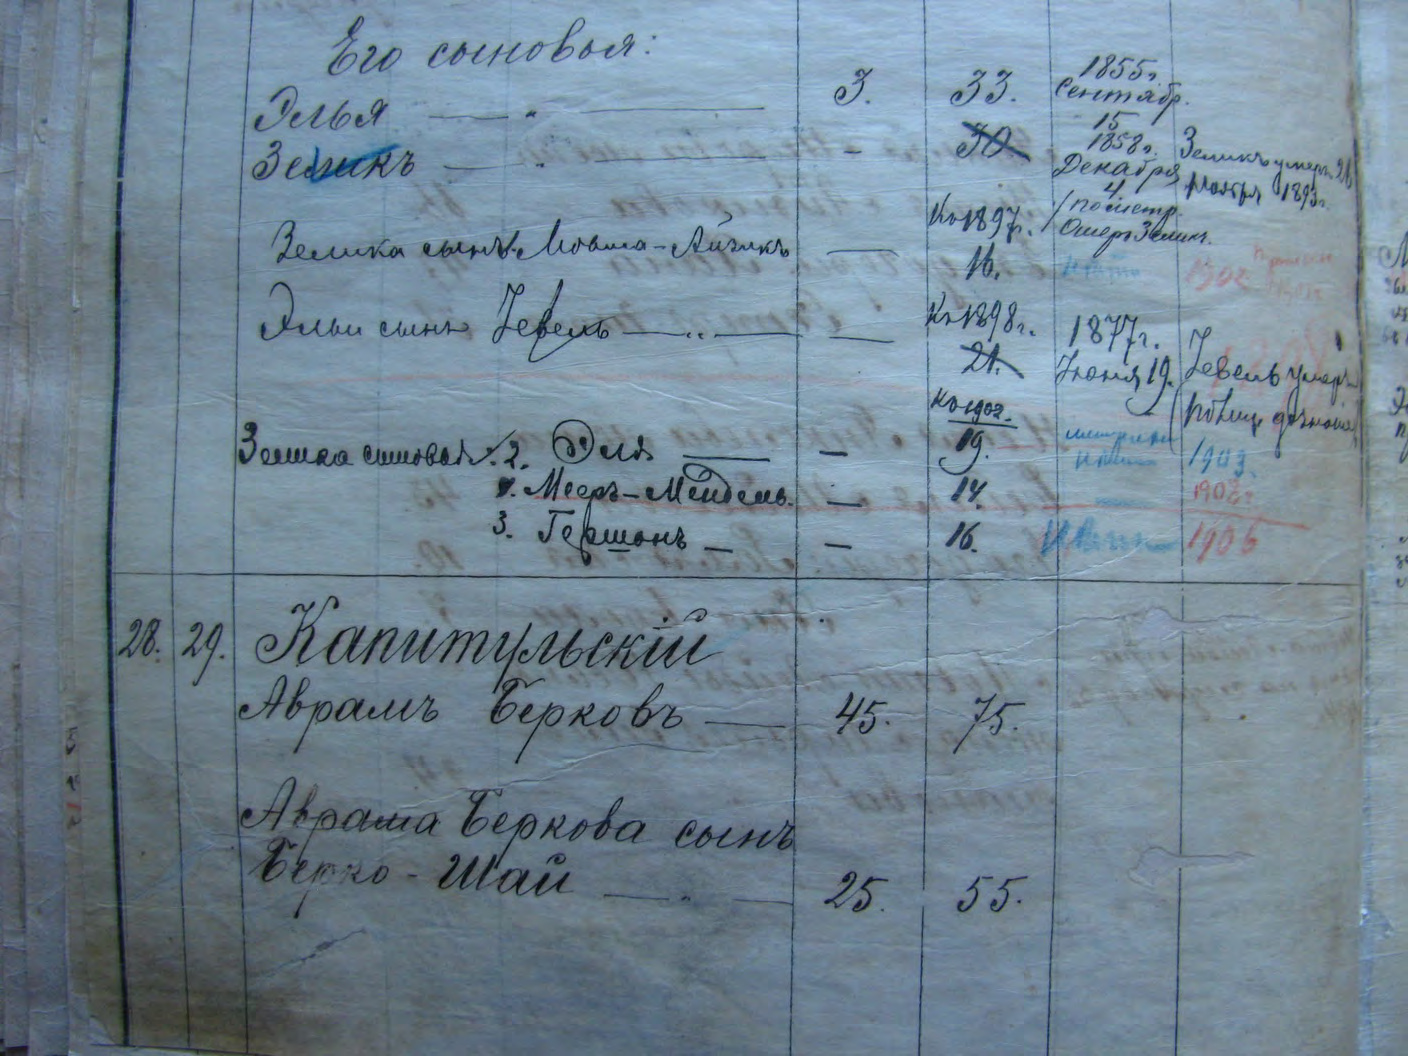 Его сыновья:
Элья — " — 3. 33. 1855г. Сентябр. 15
Зеликъ — " — - 30. 1858г. Декабря 4 Зеликъ умеръ 26 Ноября 1893г.
/по метр. Ошеръ Зелик.
Зелика сынъ: Мовша-Айзикъ — Къ 1897г. 16. 1902
Эльи сынъ Зевель — " — — Къ 1898г. 21. 1877г. Іюня 19. Зевель умеръ
Къ 1902.
Зелика сыновья: 2. Эля — - 19. 1903.
1. Мееръ-Мендель. - 14. 1908г.
3. Гершонъ — - 16. 1906
28. 29. Капитульскій
Аврамъ Берковъ — 45. 75.
Аврама Беркова сынъ
Берко-Шай — " — 25. 55.